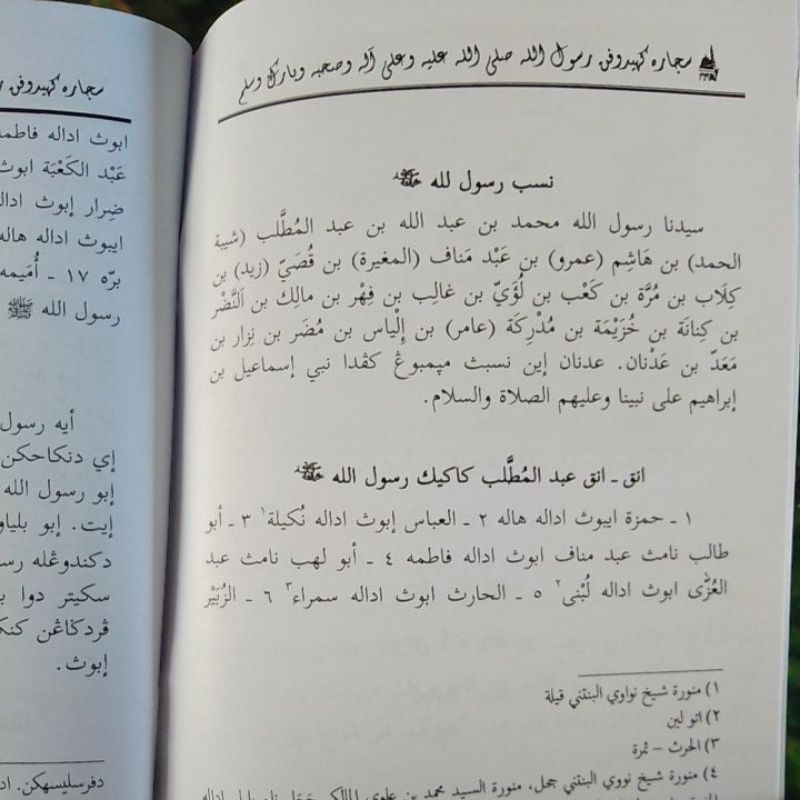 سجاره كهيدوفن رسول الله صلى الله عليه وعلى آله وصحبه وبارك وسلم
نسب رسول لله ﷺ
سيدنا رسول الله محمد بن عبد الله بن عبد المُطَّلب (شيبة
الحمد) بن هَاشِم (عمرو) بن عَبْد مَناف (المغيرة) بن قُصَيّ (زيد) بن
كِلَاب بن مُرَّة بن كَعْب بن لُؤَيّ بن غالِب بن فِهْر بن مالِك بن اَلنَّضْر
بن كِنانَة بن خُزَيْمَة بن مُدْرِكَة (عامر) بن إِلْياس بن مُضَر بن نِزار بن
مَعَدّ بن عَدْنان. عدنان إين نسبث مپمبوڠ كڤدا نبي إسماعيل بن
إبراهيم على نبينا وعليهم الصلاة والسلام.
انق ـ انق عبد المُطَّلب كاكيك رسول الله ﷺ
١ ـ حمزة ايبوث اداله هاله ٢ ـ العباس إبوث اداله نُكيلة١ ٣ ـ أبو
طالب نامث عبد مناف ابوث اداله فاطمه ٤ ـ أبو لهب نامث عبد
العُزَّى ابوث اداله لُبْنى٢ ٥ ـ الحارث ابوث اداله سمراء٣ ٦ ـ الزُبَيْر
١) منورة شيخ نواوي البنتني قيلة
٢) اتو لين
٣) الحرث – ثمرة
٤) منورة شيخ نووي البنتني جحل، منورة السيد محمد بن علوي المالكي
سجاره كهيدوفن
ابوث اداله فاطمه
عَبْد الكَعْبَة ابوث
ضِرار إبوث
ايبوث اداله هاله
برّه ١٧ ـ أُمَيمه
رسول الله ﷺ
أيه رسول
إي دنكاحكن
إبو رسول الله
إيت. إبو
دكندوڠله
سكيتر دوا
ڤردكاڠن
إبوث.
دفرسليسهكن.